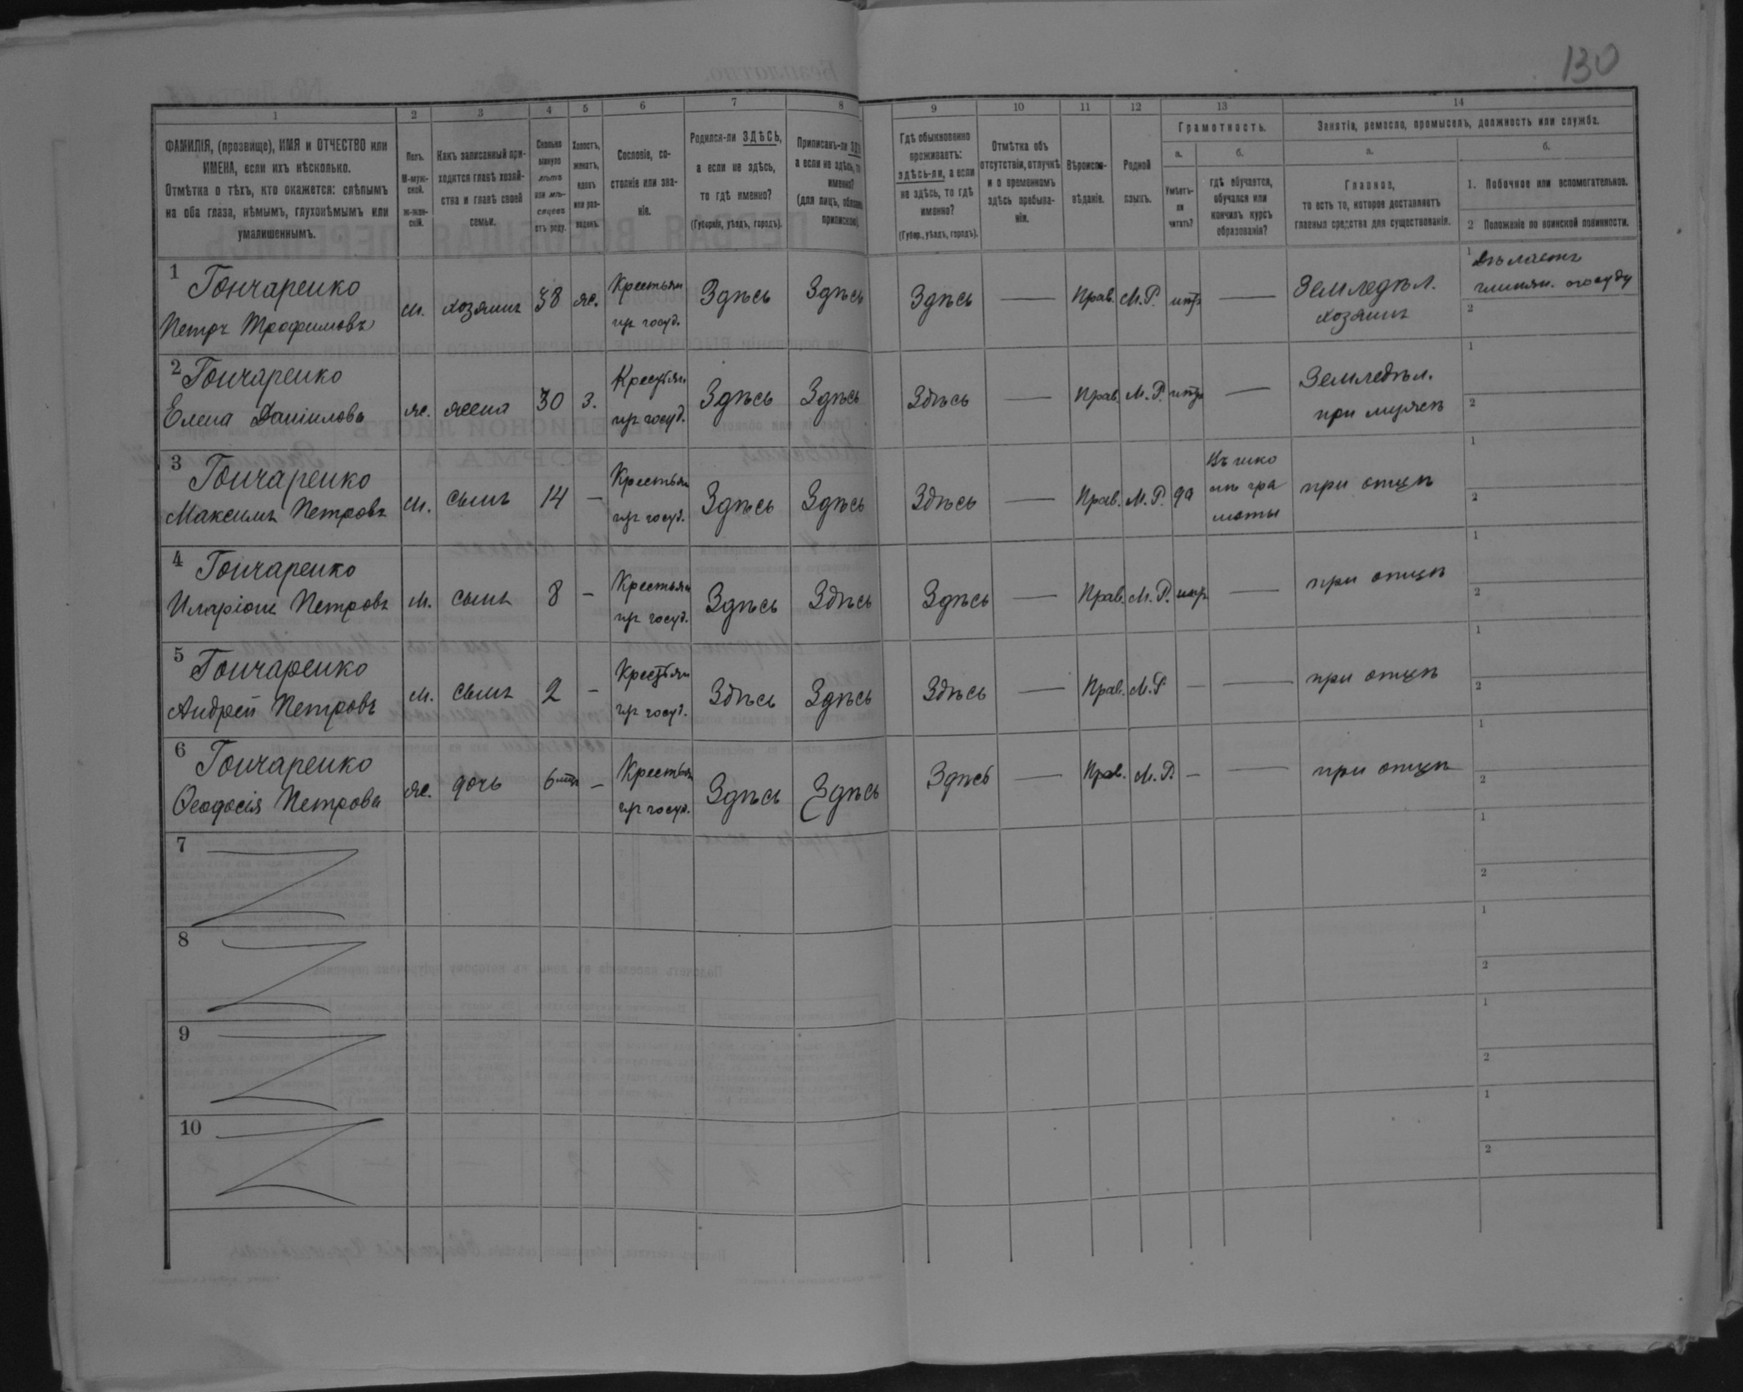 130
1 2 3 4 5 6 7 8 9 10 11 12 13 14
ФАМИЛІЯ, (прозвище), ИМЯ и ОТЧЕСТВО или
ИМЕНА, если ихъ нѣсколько.
Отмѣтка о тѣхъ, кто окажется: слѣпымъ
на оба глаза, нѣмымъ, глухонѣмымъ или
умалишеннымъ.
Полъ.
М-муж-
ской.
ж-жен-
скій.
Какъ записанный при-
ходится главѣ хозяй-
ства и главѣ своей
семьи.
Сколько
минуло
лѣтъ
или мѣ-
сяцевъ
отъ роду.
Холостъ,
женатъ,
вдовъ
или раз-
веденъ.
Сословіе, со-
стояніе или зва-
ніе.
Родился-ли ЗДѢСЬ,
а если не здѣсь,
то гдѣ именно?
(Губернія, уѣздъ, городъ).
Приписанъ-ли
а если не здѣсь, то
именно?
(для лицъ,
Гдѣ обыкновенно
проживаетъ:
здѣсь-ли, а если
не здѣсь, то гдѣ
именно?
(Губер., уѣздъ, городъ).
Отмѣтка объ
отсутствіи, отлучкѣ
и о временномъ
здѣсь пребыва-
ніи.
Вѣроиспо-
вѣданіе.
Родной
языкъ.
Грамотность.
а. б.
Умѣетъ-
ли
читать?
гдѣ обучается,
обучался или
кончилъ курсъ
образованія?
Занятіе, ремесло, промыселъ, должность или служба.
а.
Главное,
то есть то, которое доставляетъ
главныя средства для существованія.
б.
1. Побочное или вспомогательное.
2 Положеніе по воинской повинности.
1 Гончаренко
Петръ Трофимовъ м. хозяинъ 38 ж. Крестьян. изъ госуд. Здѣсь Здѣсь Здѣсь — Прав. М.Р. нѣтъ — Земледѣл. хозяинъ 1 дѣлаетъ глинян. посуду 2
2 Гончаренко
Елена Даніилова ж. жена 30 з. Крестьян. изъ госуд. Здѣсь Здѣсь Здѣсь — Прав. М.Р. нѣтъ — Земледѣл. при мужѣ 1 2
3 Гончаренко
Максимъ Петровъ м. сынъ 14 — Крестьян. изъ госуд. Здѣсь Здѣсь Здѣсь — Прав. М.Р. да въ шко лѣ гра моты при отцѣ 1 2
4 Гончаренко
Иларіонъ Петровъ м. сынъ 8 — Крестьян. изъ госуд. Здѣсь Здѣсь Здѣсь — Прав. М.Р. нѣтъ — при отцѣ 1 2
5 Гончаренко
Андрей Петровъ м. сынъ 2 — Крестьян. изъ госуд. Здѣсь Здѣсь Здѣсь — Прав. М.Р — — при отцѣ 1 2
6 Гончаренко
Ѳеодосія Петрова ж. дочь 6 — Крестьян. изъ госуд. Здѣсь Здѣсь Здѣсь — Прав. М.Р. — — при отцѣ 1 2
7 1 2
8 1 2
9 1 2
10 1 2